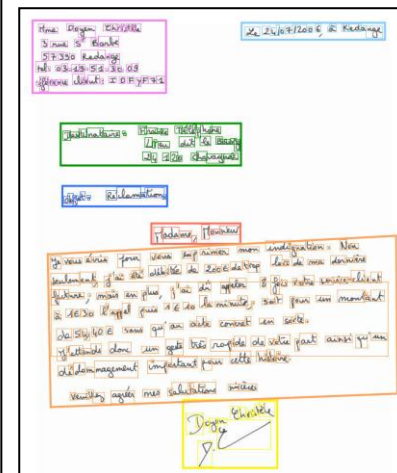 Mme Doyen Christèle
3 rue Ste Barbe
57390 Redange
tel: 03.19.51.30.09
Le 24/07/2006, à Redange
Destinataire:
objet: Réclamation
Madame, Monsieur
Je vous écris pour vous exprimer mon indignation. Non
seulement, j'ai été débitée de 200€ de trop lors de ma dernière
facture, mais en plus, j'ai dû appeler 8 fois votre service client
à 1€30 l'appel puis 1€ la minute, soit pour un montant
de 54,40€ sans qu'un acte concret en sorte.
J'attends donc un geste très rapide de votre part ainsi qu'un
dédommagement important pour cette histoire.
veuillez agréer mes salutations sincères
Doyen Christèle